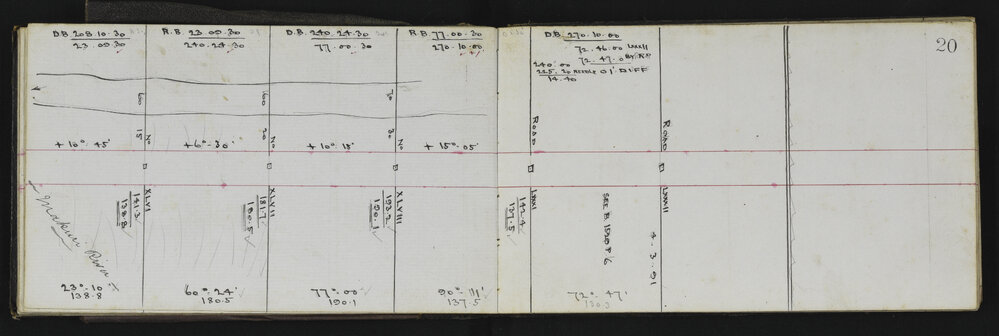 D.B. 208.10.30
23.09.30
R.B. 23.09.30
240.24.30
D.B. 240.24.30
77.00.30
R.B. 77.00.30
270.10.00
D.B. 270.10.00
72.46.00 LXXXII
72.47.0
240.00
225.20 NEEDLE 01' DIFF
14.40
20
60
60
70
15
20
30
No
No
No
ROAD
ROAD
+ 10°. 45'
+ 6°. 30'
+ 10°. 15'
+ 15°. 05'
XLVI
141.3
138.8
XLVII
181.7
180.5
XLVIII
193.2
190.1
LXXXI
142.4
137.5
LXXXII
SEE B 1520 P 16
4.3.91
Makuri River
23°.10'
138.8
60°.24'
180.5
77°.00
190.1
90°.11'
137.5
72°.47'
130.3